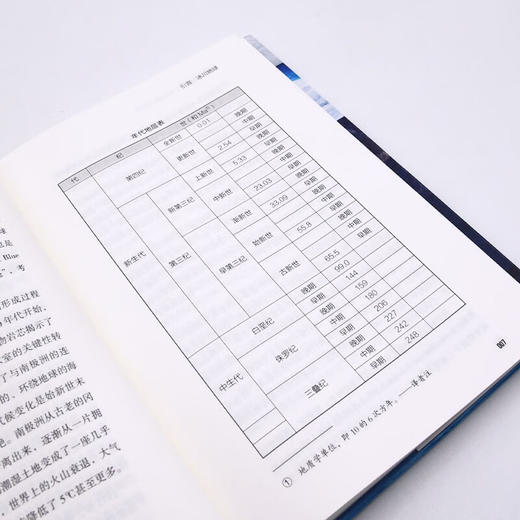 引言：冰川地球
年代地层表
代 纪 世（和Ma①）
新生代 第四纪 全新世 0.01 晚期
更新世 中期
早期
新第三纪 上新世 2.54 晚期
中新世 5.33 晚期
中期
早期
第三纪 早第三纪 渐新世 23.03 晚期
早期
始新世 33.09 晚期
中期
早期
古新世 55.8 晚期
早期
中生代 白垩纪 65.5 晚期
99.0 早期
侏罗纪 144 晚期
159 中期
180 早期
三叠纪 206 晚期
227 中期
242 早期
248
① 地质学单位，即10的6次方年。——译者注
007
球
也是
Blue
”，考
形成过程
年代开始，
物岩芯揭示了
室的关键性转
了与南极洲的连
的、环绕地球的海
候变化是始新世末
。南极洲从古老的冈
离出来，逐渐从一片拥
潮湿土地变成了一座几乎
，世界上的火山衰退，大气
降低了5℃甚至更多。